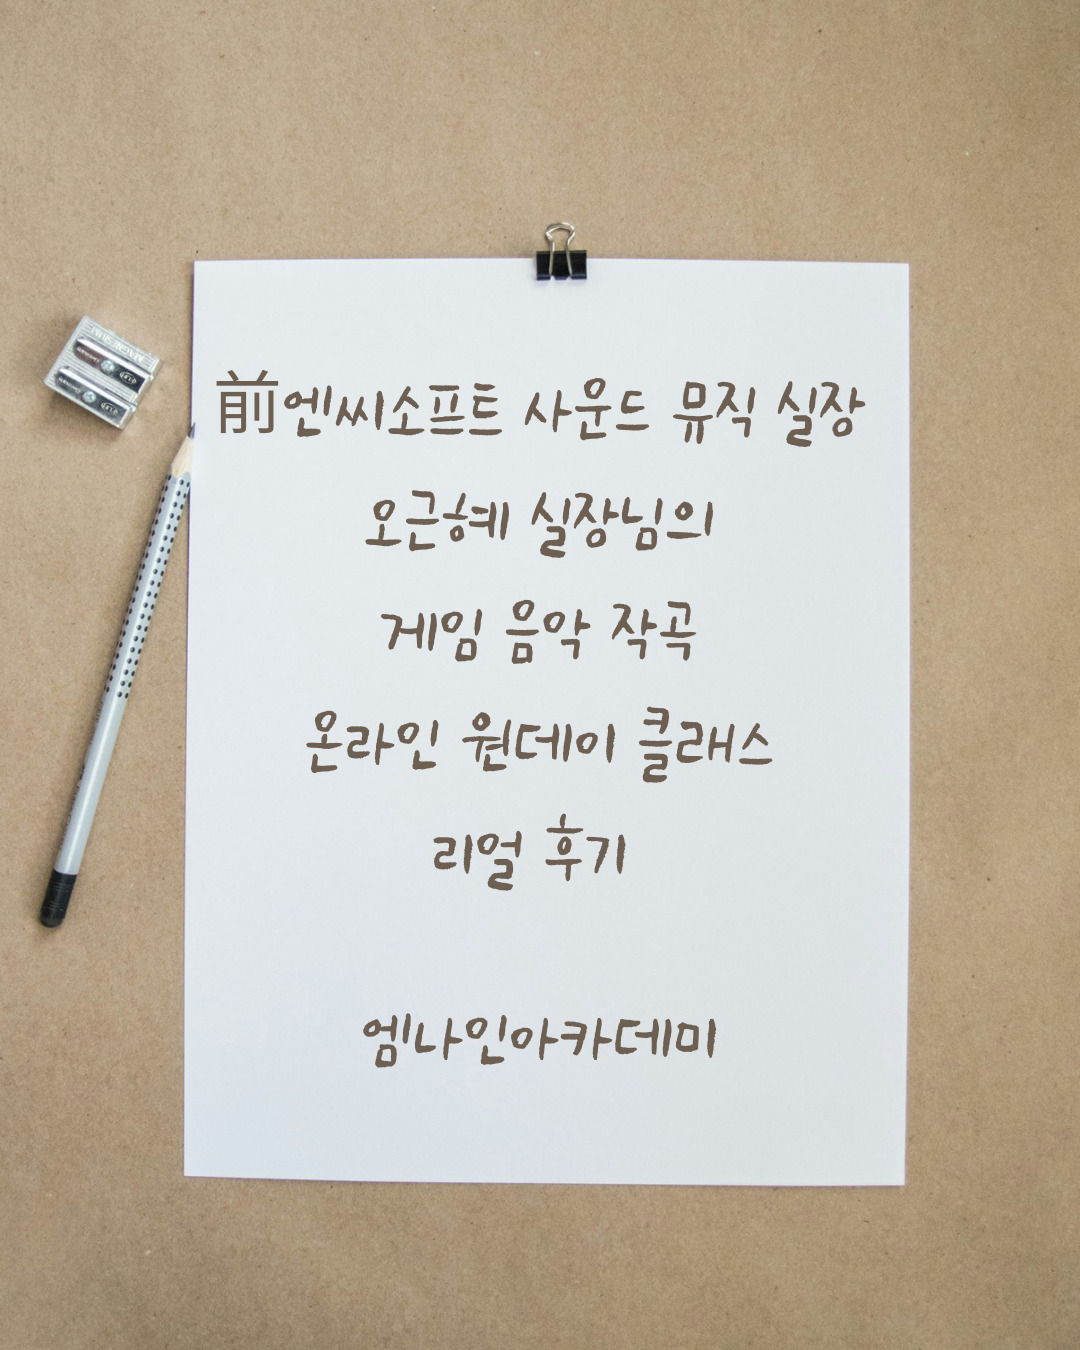 前엔씨소프트 사운드 뮤직 실장
오근혜 실장님의
게임 음악 작곡
온라인 원데이 클래스
리얼 후기
엠나인아카데미